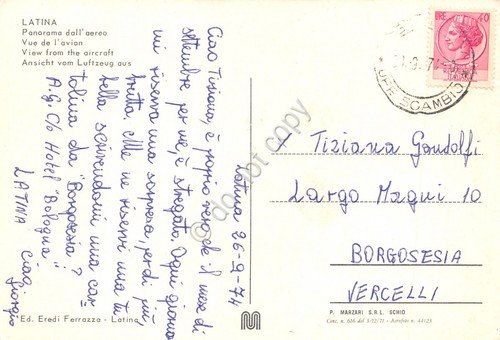 LATINA
Panorama dall'aereo
Vue de l'avion
View from the aircraft
Ansicht vom Luftzeug aus
Latina 26-9-74
Ciao Tiziana, è proprio vero che il mese di
settembre per me, è stregato. Ogni giorno
mi riserva una sorpresa, perdi più
brutta. Me ne riservi una tu
bella scrivendomi una car-
tolina da "Borgosesia"?
A.G. C/o Hotel "Bologna"
LATINA Ciao
Giorgio
Ed. Eredi Ferrazza - Latina
LIRE 40
UFF. SCAMBIO
Tiziana Gondolfi
Largo Magni 10
BORGOSESIA
VERCELLI
P. MARZARI S.R.L. SCHIO
Conc. n. 616 del 3/12/71 - Aerofoto n. 44123
do not copy